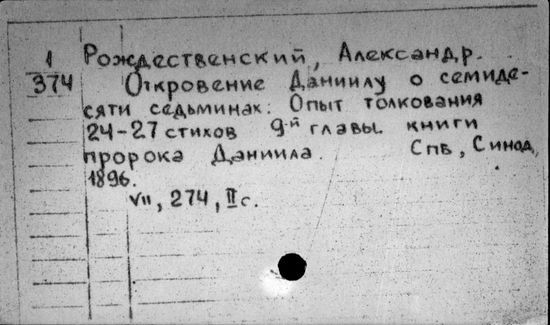 1 Рождественский, Александр.
374 Откровение Даниилу о семиде-
сяти седьминах: Опыт толкования
24-27 стихов 9-й главы книги
пророка Даниила. Спб, Синод,
1896.
VII, 274, II с.